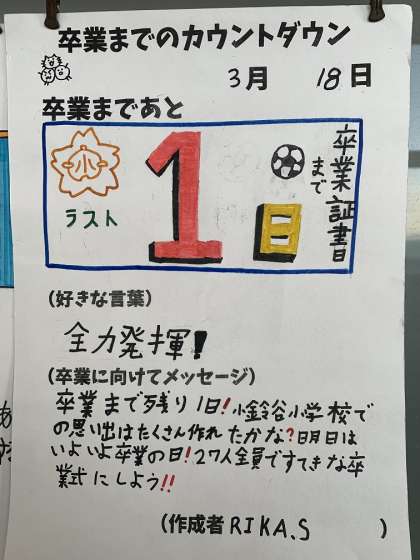 卒業までのカウントダウン
3月 18日
卒業まであと
小
ラスト
1日
卒業証書日
まで
(好きな言葉)
全力発揮!
(卒業に向けてメッセージ)
卒業まで残り1日!小鈴谷小学校で
の思い出はたくさん作れたかな?明日は
いよいよ卒業の日!27人全員ですてきな卒
業式にしよう!!
(作成者 RIKA.S )